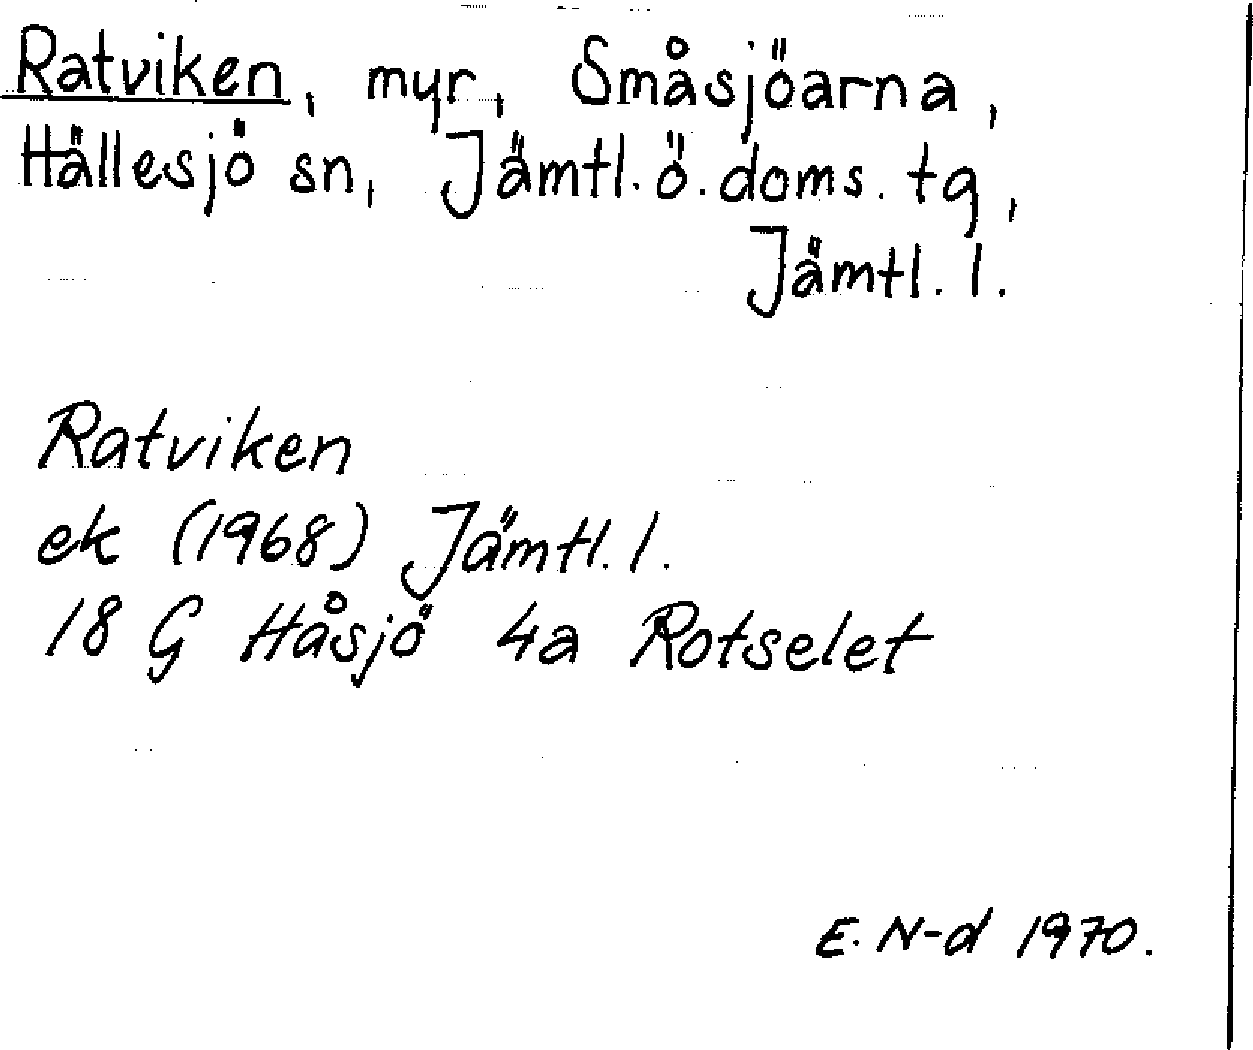 Ratviken, myr, Småsjöarna,
Hällesjö sn, Jämtl. ö. doms. tg,
Jämtl. l.
Ratviken
ek (1968) Jämtl. l.
18 G Håsjö 4a Rotselet
E. N-d 1970.